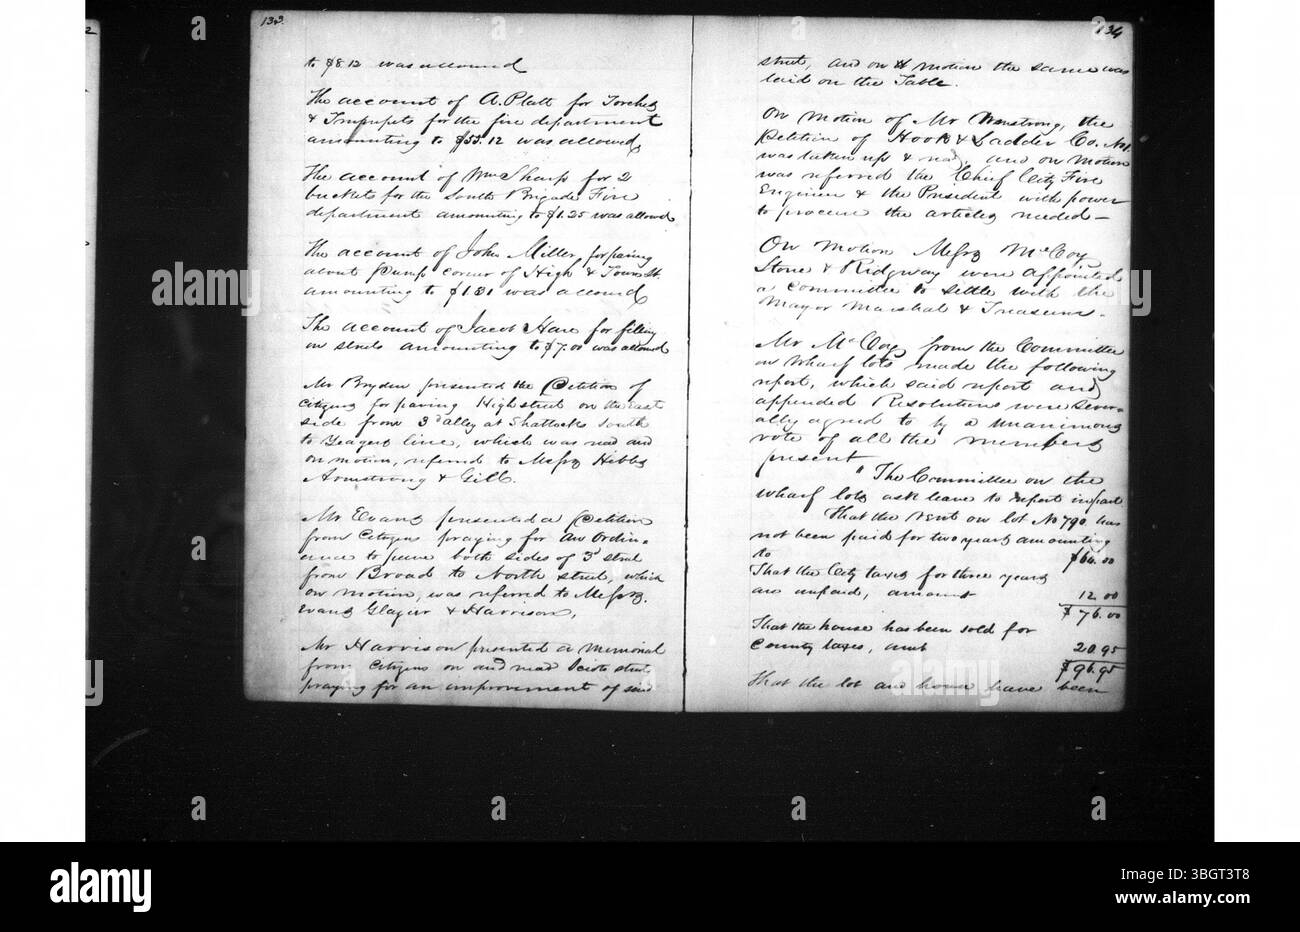 133.
to $8.12 was allowed
The account of A. Platt for Torches
& Trumpets for the fire department
amounting to $53.12 was allowed
The account of Wm Sharp for 2
buckets for the South Brigade Fire
department amounting to $1.25 was allowed
The account of John Miller for paving
about Pump corner of High & Town St
amounting to $1 31 was allowed
The account of Jacob Hare for filling
on streets amounting to $7.00 was allowed
Mr Bryden presented the Petition of
Citizens for paving High street on the east
side from 3d alley at Shattocks South
to line, which was read and
on motion, referred to Messrs Hibbs
Armstrong & Gill.
Mr Evans presented a Petition
from Citizens praying for an Ordin-
ance to pave both sides of 3d street
from Broad to North street, which
on motion, was referred to Messrs.
Evans Glazier & Harrison,
Mr Harrison presented a Memorial
from citizens on and near Scioto street
praying for an improvement of said
134
street, and on motion the same was
laid on the Table.
On motion of Mr Armstrong, the
Petition of Hook & Ladder Co. No 1.
was taken up & read, and on motion
was referred the Chief City Fire
Engineer & the President with power
to procure the articles needed—
On motion Messrs McCoy
Stone & Ridgway were appointed
a committee to settle with the
Mayor Marshal & Treasurer.
Mr McCoy from the Committee
on Wharf lots made the following
report, which said report and
appended Resolutions were sever-
ally agreed to by a unanimous
vote of all the members
present
"The Committee on the
wharf lots ask leave to report in part
That the rent on lot No 790. has
not been paid for two years amounting
to $64.00
That the City taxes for three years
are unpaid, amount 12 00
$76.00
That the house has been sold for
County taxes, amt 20.95
$96.95
That the lot and house have been
alamy
a
alamy
Image ID: 3BGT3T8
www.alamy.com